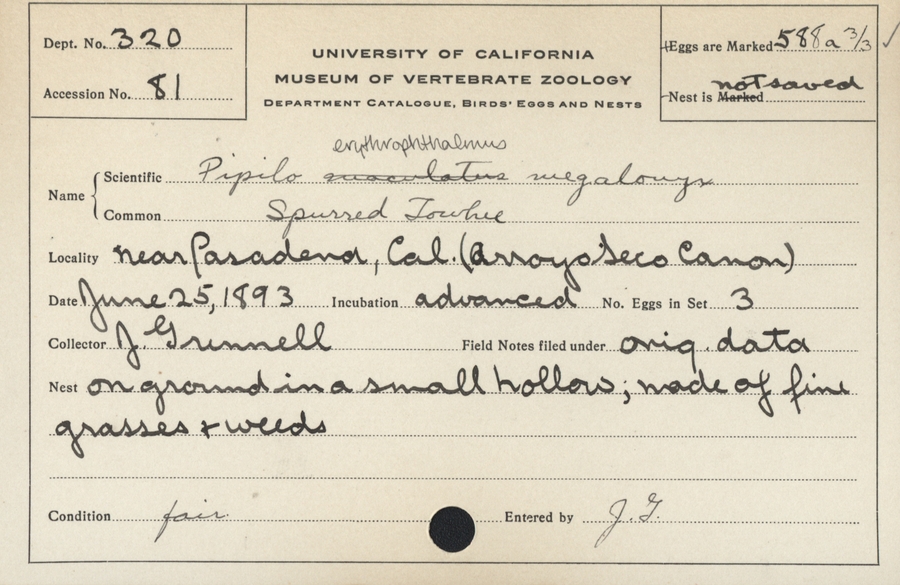 Dept. No. 320
Accession No. 81
UNIVERSITY OF CALIFORNIA
MUSEUM OF VERTEBRATE ZOOLOGY
DEPARTMENT CATALOGUE, BIRDS' EGGS AND NESTS
Eggs are Marked 588a 3/3 ✓
not saved
Nest is Marked
erythrophthalmus
Name { Scientific Pipilo maculatus megalonyx
Common Spurred Towhee
Locality near Pasadena, Cal. (Arroyo Seco Canon)
Date June 25, 1893 Incubation advanced No. Eggs in Set 3
Collector J. Grinnell Field Notes filed under orig. data
Nest on ground in a small hollow; made of fine
grasses & weeds
Condition fair Entered by J. G.